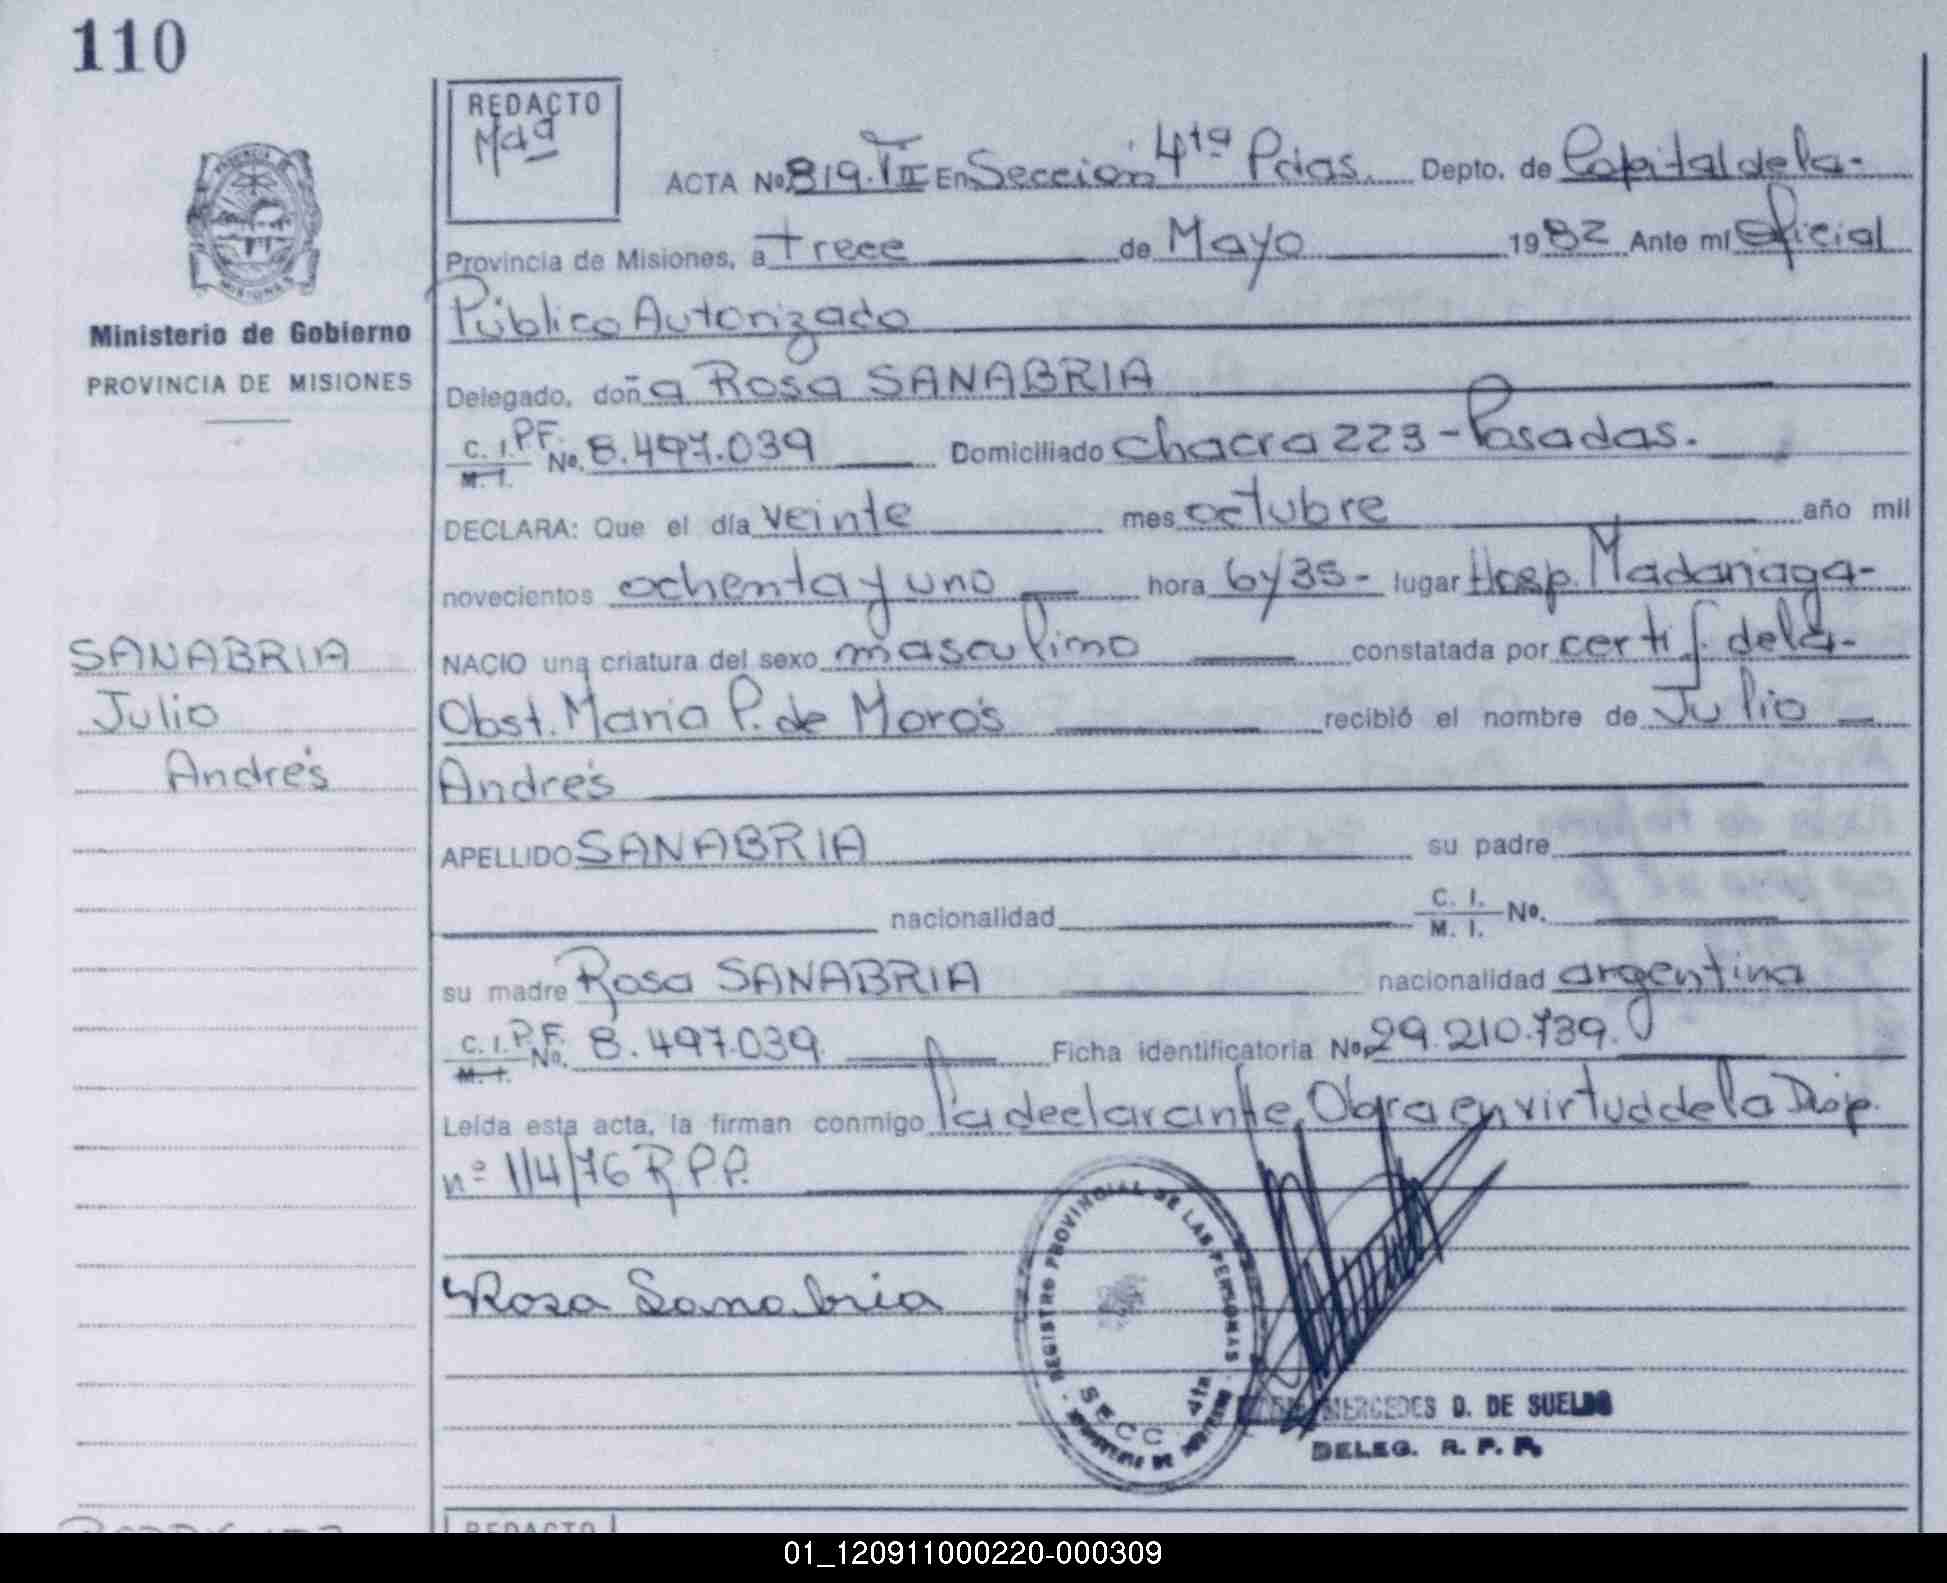 110
REDACTO
Mdª
ACTA No 819. TII En Sección 4ta Pdas. Depto. de Capital de la-
Provincia de Misiones, a trece de Mayo 1982 Ante mí Oficial
Público Autorizado
Ministerio de Gobierno
PROVINCIA DE MISIONES
Delegado, doña Rosa SANABRIA
C. I. P.F. M. I. No. 8.497.039 Domiciliado Chacra 223 - Posadas.
DECLARA: Que el día veinte mes octubre año mil
novecientos ochenta y uno hora 6 y 35 - lugar Hosp. Madariaga-
SANABRIA
Julio
Andrés
NACIO una criatura del sexo masculino constatada por certif. de la-
Obst. María P. de Morós recibió el nombre de Julio
Andrés
APELLIDO SANABRIA su padre
nacionalidad C. I. M. I. No.
su madre Rosa SANABRIA nacionalidad argentina
C. I. P.F. M. I. No. 8.497.039. Ficha identificatoria No. 29.210.739.
Leída esta acta, la firman conmigo la declarante. Obra en virtud de la Disp.
nº 114/76 R.P.P.
Rosa Sanabria
REGISTRO PROVINCIAL DE LAS PERSONAS
SECC. 4ta
MERCEDES D. DE SUELDO
DELEG. R. P. P.
REDACTO
01_120911000220-000309